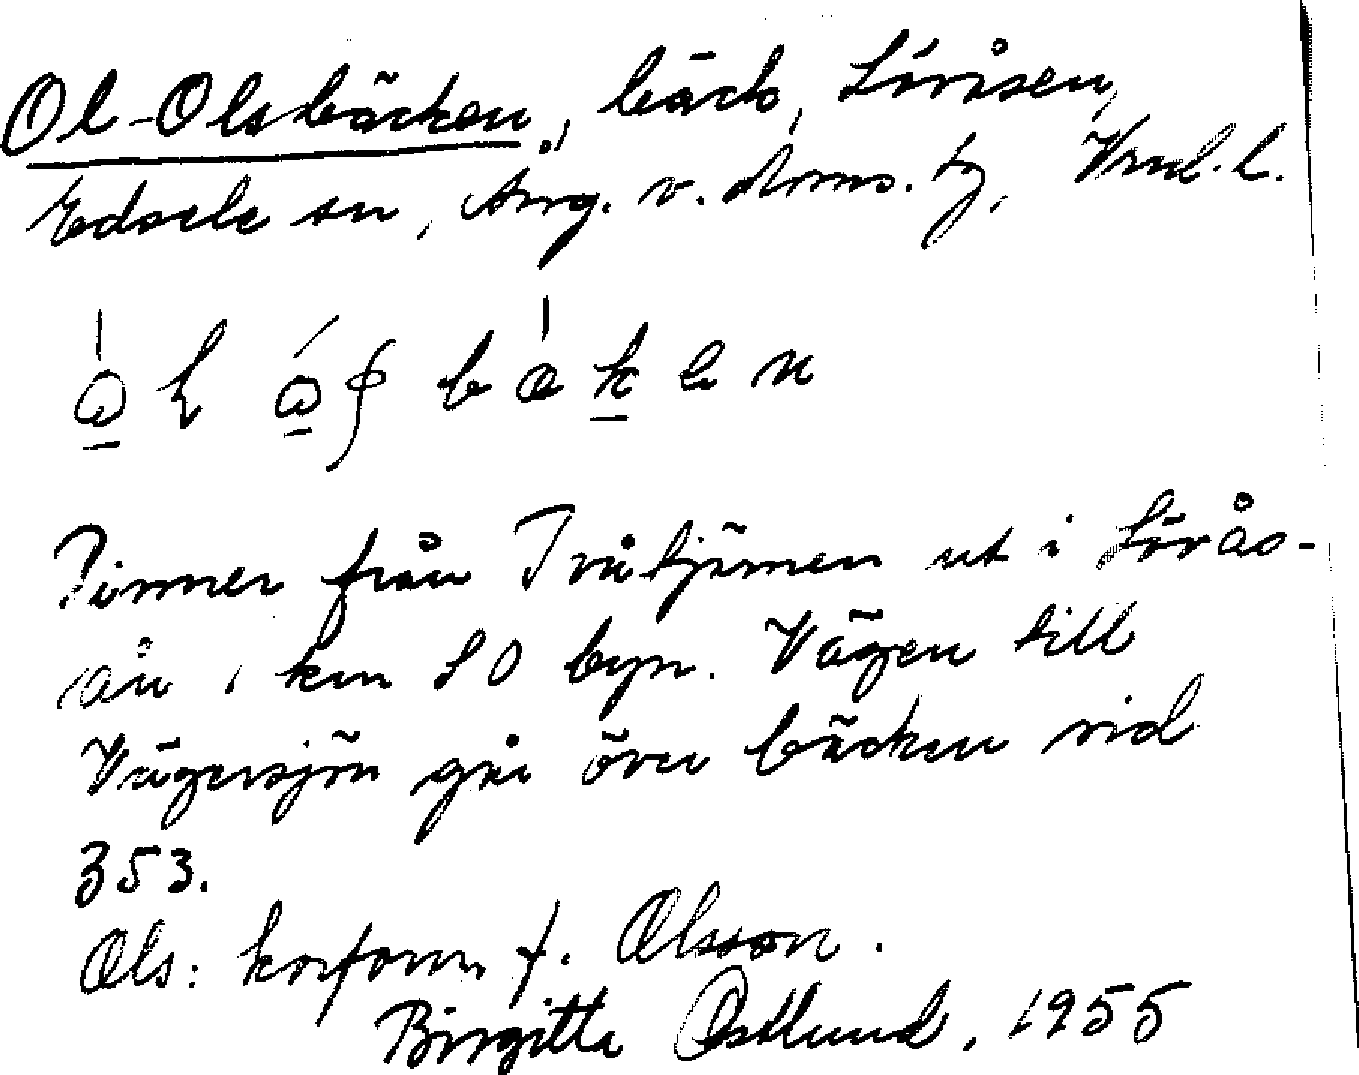 Ol-Olsbäcken, bäck, Löråsen,
Edsele sn, Ång. v. doms. tg, Vnl. l.
Rinner från Tvåtjärnen ut i Lörås-
ån 1 km SO byn. Vägen till
Vägersjön går över bäcken vid
353.
Ols: kortform f. Olsson.
Birgitta Östlund, 1955